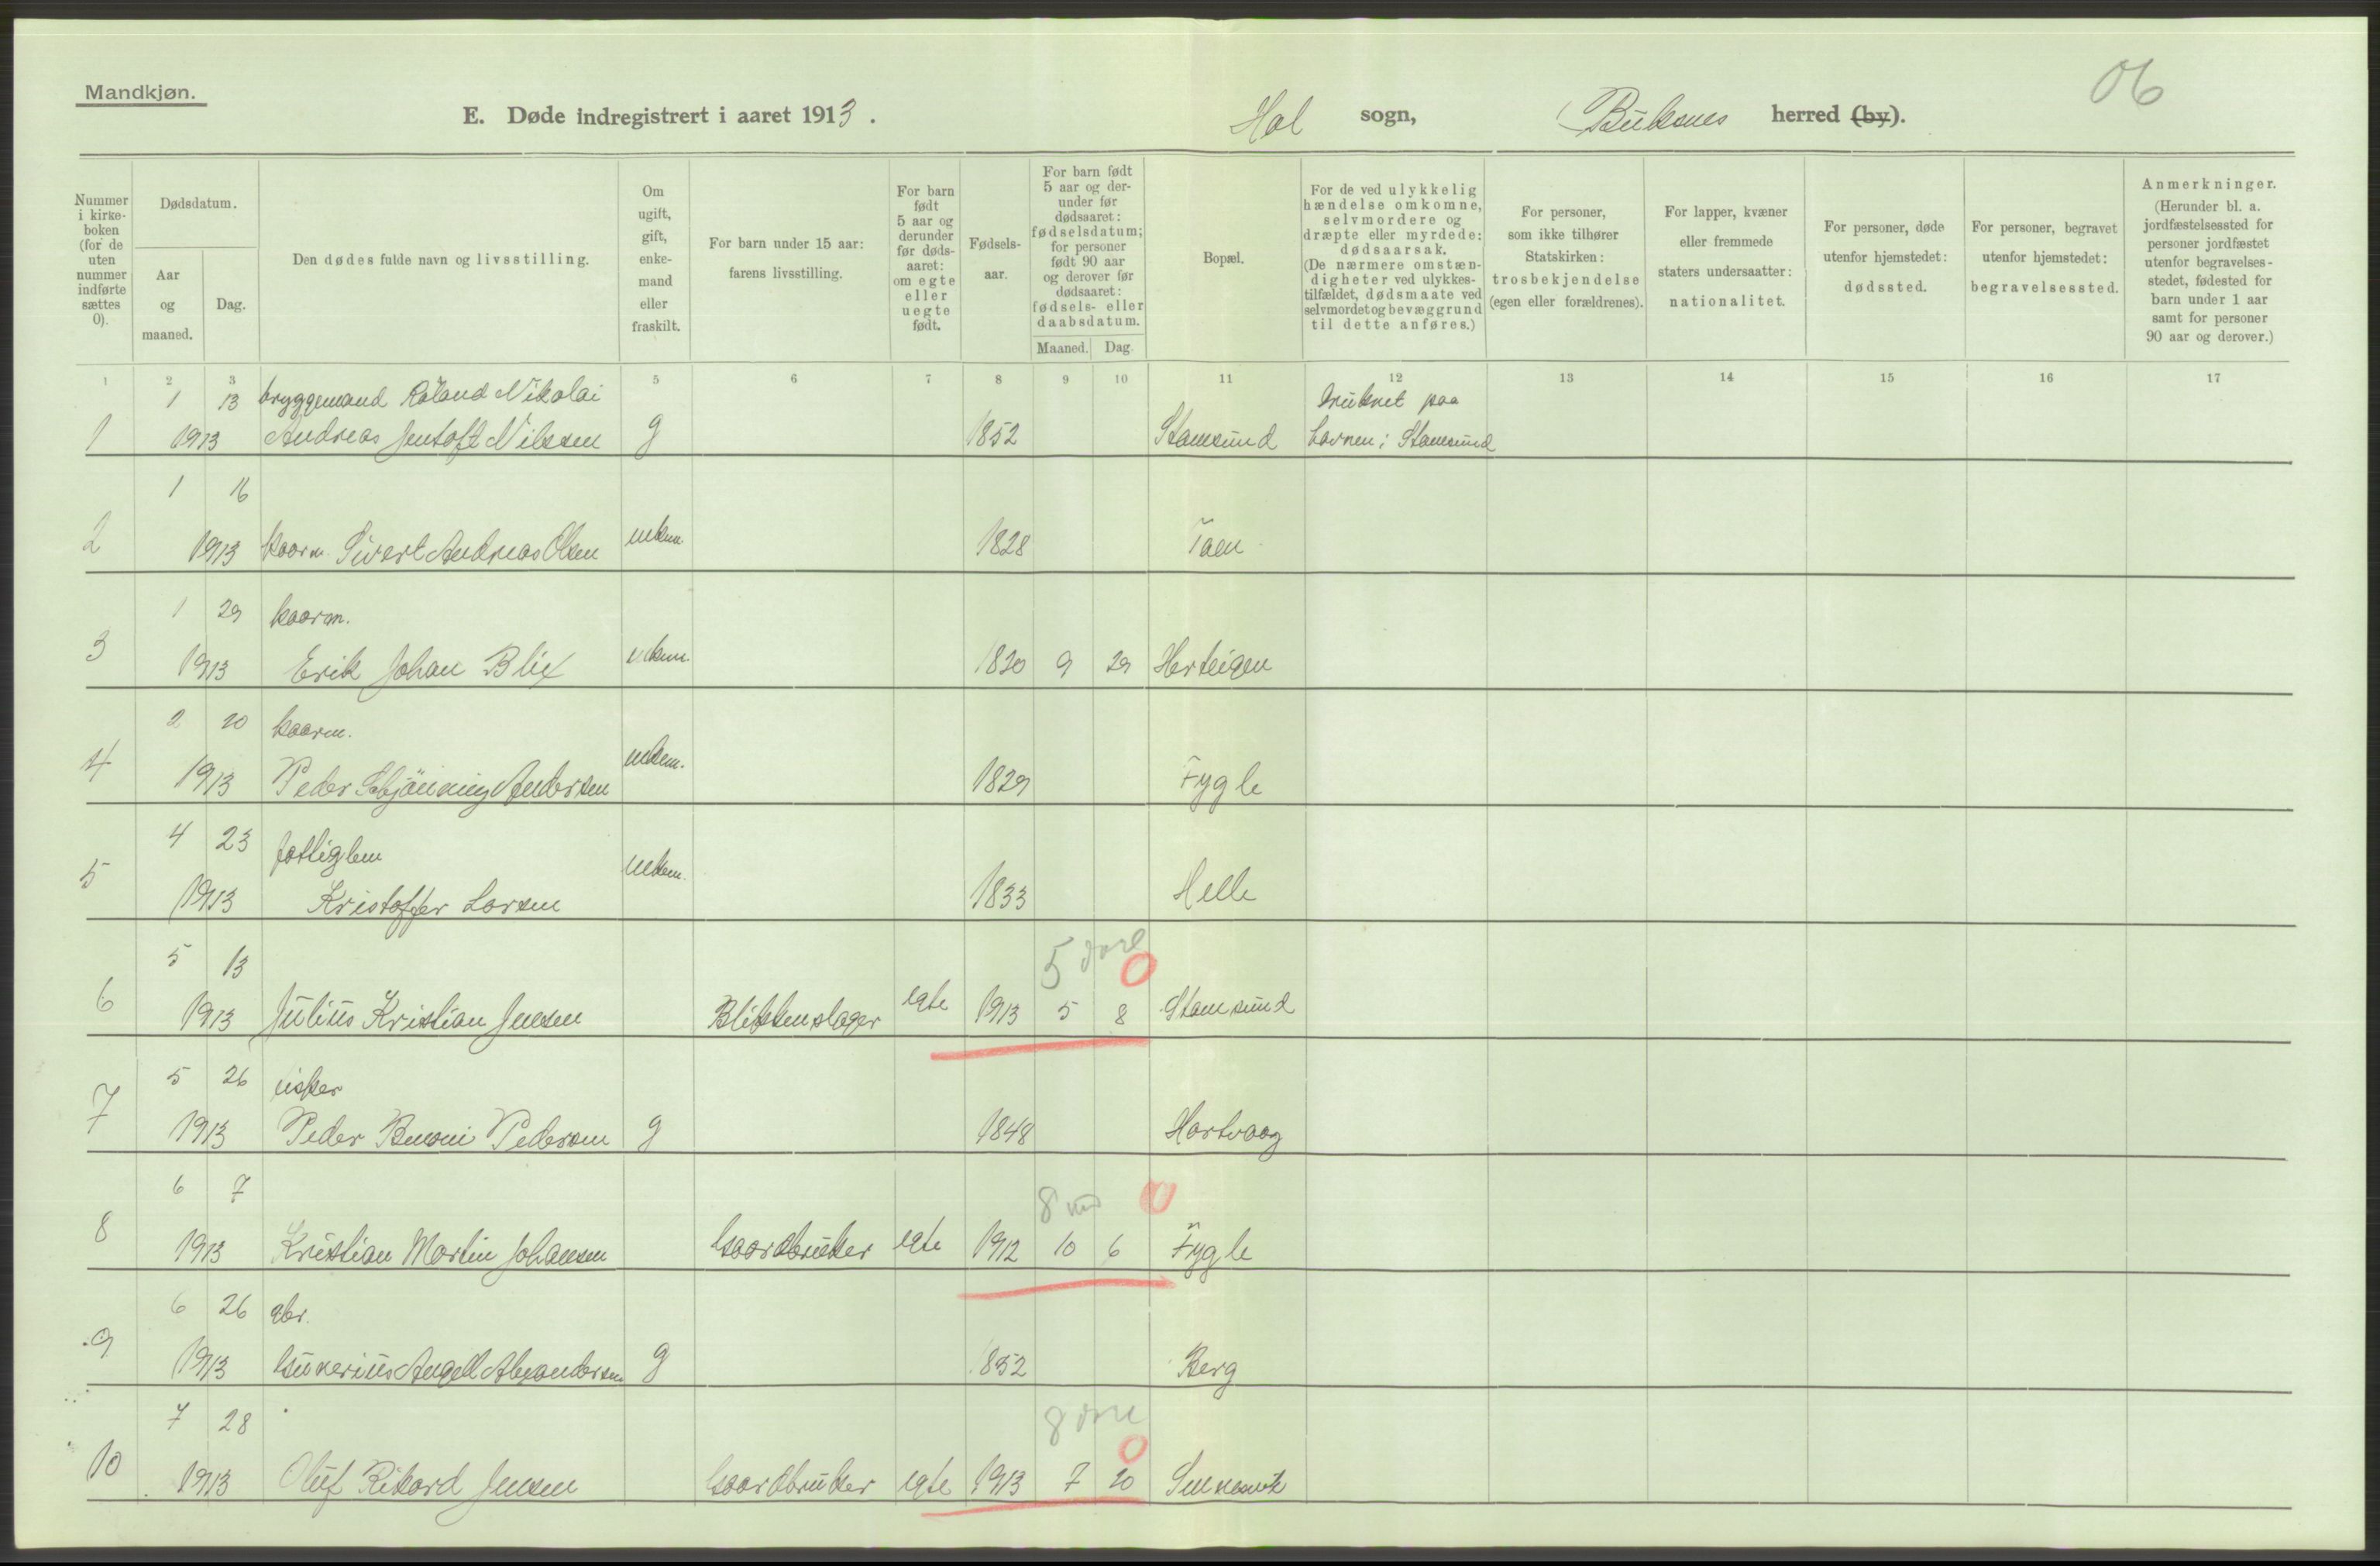 Mandkjøn.
06
E. Døde indregistrert i aaret 1913.
Hol sogn, Buksnes herred (by).
Nummer i kirke-boken (for de uten nummer indførte sættes 0).
Dødsdatum.
Aar og maaned.
Dag.
Den dødes fulde navn og livsstilling.
Om ugift, gift, enke-mand eller fraskilt.
For barn under 15 aar: farens livsstilling.
For barn født 5 aar og derunder før døds-aaret: om egte eller uegte født.
Fødsels-aar.
For barn født 5 aar og der-under før dødsaaret: fødselsdatum; for personer født 90 aar og derover før dødsaaret: fødsels- eller daabsdatum.
Maaned. Dag.
Bopæl.
For de ved ulykkelig hændelse omkomne, selvmordere og dræpte eller myrdede: dødsaarsak. (De nærmere omstæn-digheter ved ulykkes-tilfældet, dødsmaate ved selvmordet og bevæggrund til dette anføres.)
For personer, som ikke tilhører Statskirken: trosbekjendelse (egen eller forældrenes).
For lapper, kvæner eller fremmede staters undersaatter: nationalitet.
For personer, døde utenfor hjemstedet: dødssted.
For personer, begravet utenfor hjemstedet: begravelsessted.
Anmerkninger. (Herunder bl. a. jordfæstelsessted for personer jordfæstet utenfor begravelses-stedet, fødested for barn under 1 aar samt for personer 90 aar og derover.)
1 2 3 5 6 7 8 9 10 11 12 13 14 15 16 17
1 13 bryggemand Roland Nikolai Druknet paa
1 1913 Andreas Jentoft Nilssen g 1852 Stamsund havnen i Stamsund
1 16
2 1913 kaarm. Sivert Andreas Olsen enkem. 1828 Taen
1 29 kaarm.
3 1913 Erik Johan Blix enkem. 1820 9 29 Herteigen
2 20 kaarm.
4 1913 Peder Schjönning Andersen enkem. 1829 Fygle
4 23 fattiglem
5 1913 Kristoffer Larsen enkem. 1833 Helle
5 13 5 0
6 1913 Julius Kristian Jensen Blikkenslager egte 1913 5 8 Stamsund
5 26 fisker
7 1913 Peder Benoni Pedersen g 1848 Hartvaag
6 7 8 0
8 1913 Kristian Martin Johansen Gaardbruker egte 1912 10 6 Fygle
6 26 gbr.
9 1913 Gunerius Angell Alexandersen g 1852 Berg
7 28 8 0
10 1913 Oluf Rikard Jensen Gaardbruker egte 1913 7 20